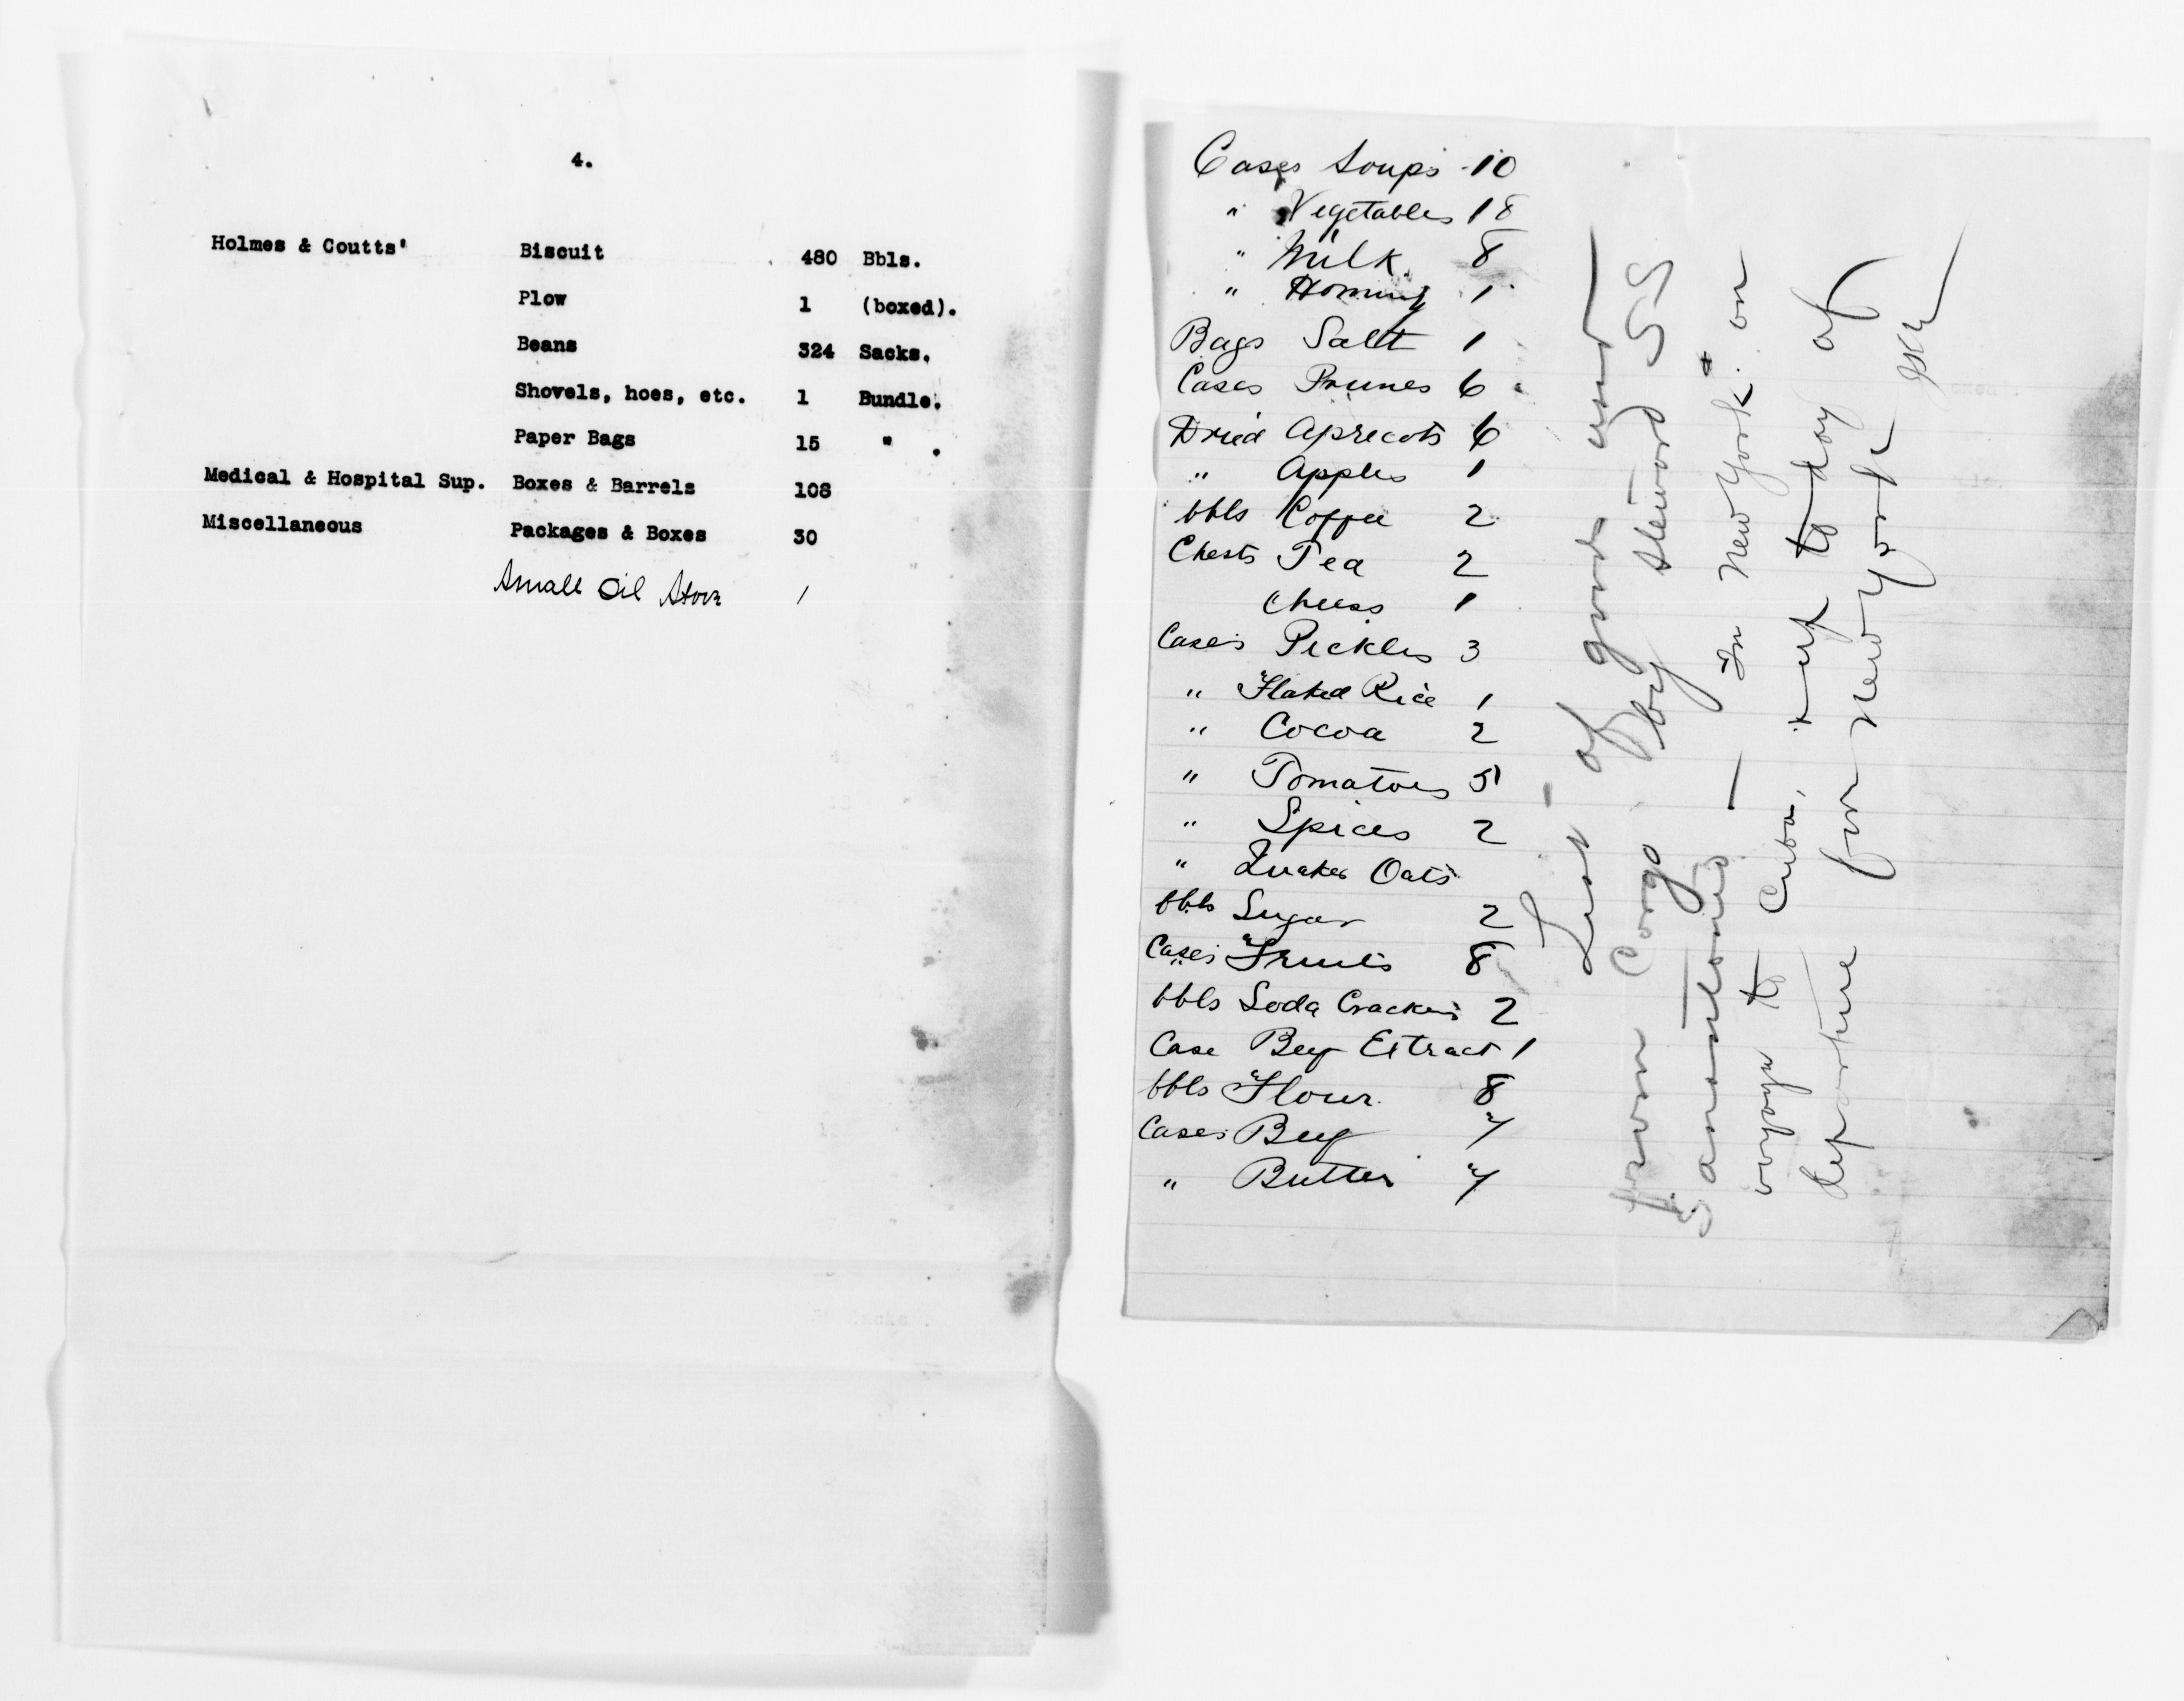 4.
Holmes & Coutts' Biscuit 480 Bbls.
Plow 1 (boxed).
Beans 324 Sacks.
Shovels, hoes, etc. 1 Bundle.
Paper Bags 15 " .
Medical & Hospital Sup. Boxes & Barrels 108
Miscellaneous Packages & Boxes 30
Small Oil Stove 1
Cases Soups 10
" Vegetables 18
" Milk. 8
" Hominy 1
Bags Salt 1
Cases Prunes 6
Dried Apricots 6
" Apples 1
bbls Coffee 2
Chests Tea 2
Cheese 1
Cases Pickles 3
" Flaked Rice 1
" Cocoa 2
" Tomatoes 5
" Spices 2
" Quaker Oats
bbls Sugar 2
Cases Fruits 8
bbls Soda Crackers 2
Case Beef Extract 1
bbls Flour 8
Cases Beef
" Butter
List - of goods used
from Cargo by steward SS
In New York. on
voyage to Cuba, & up to day of
departure for New York